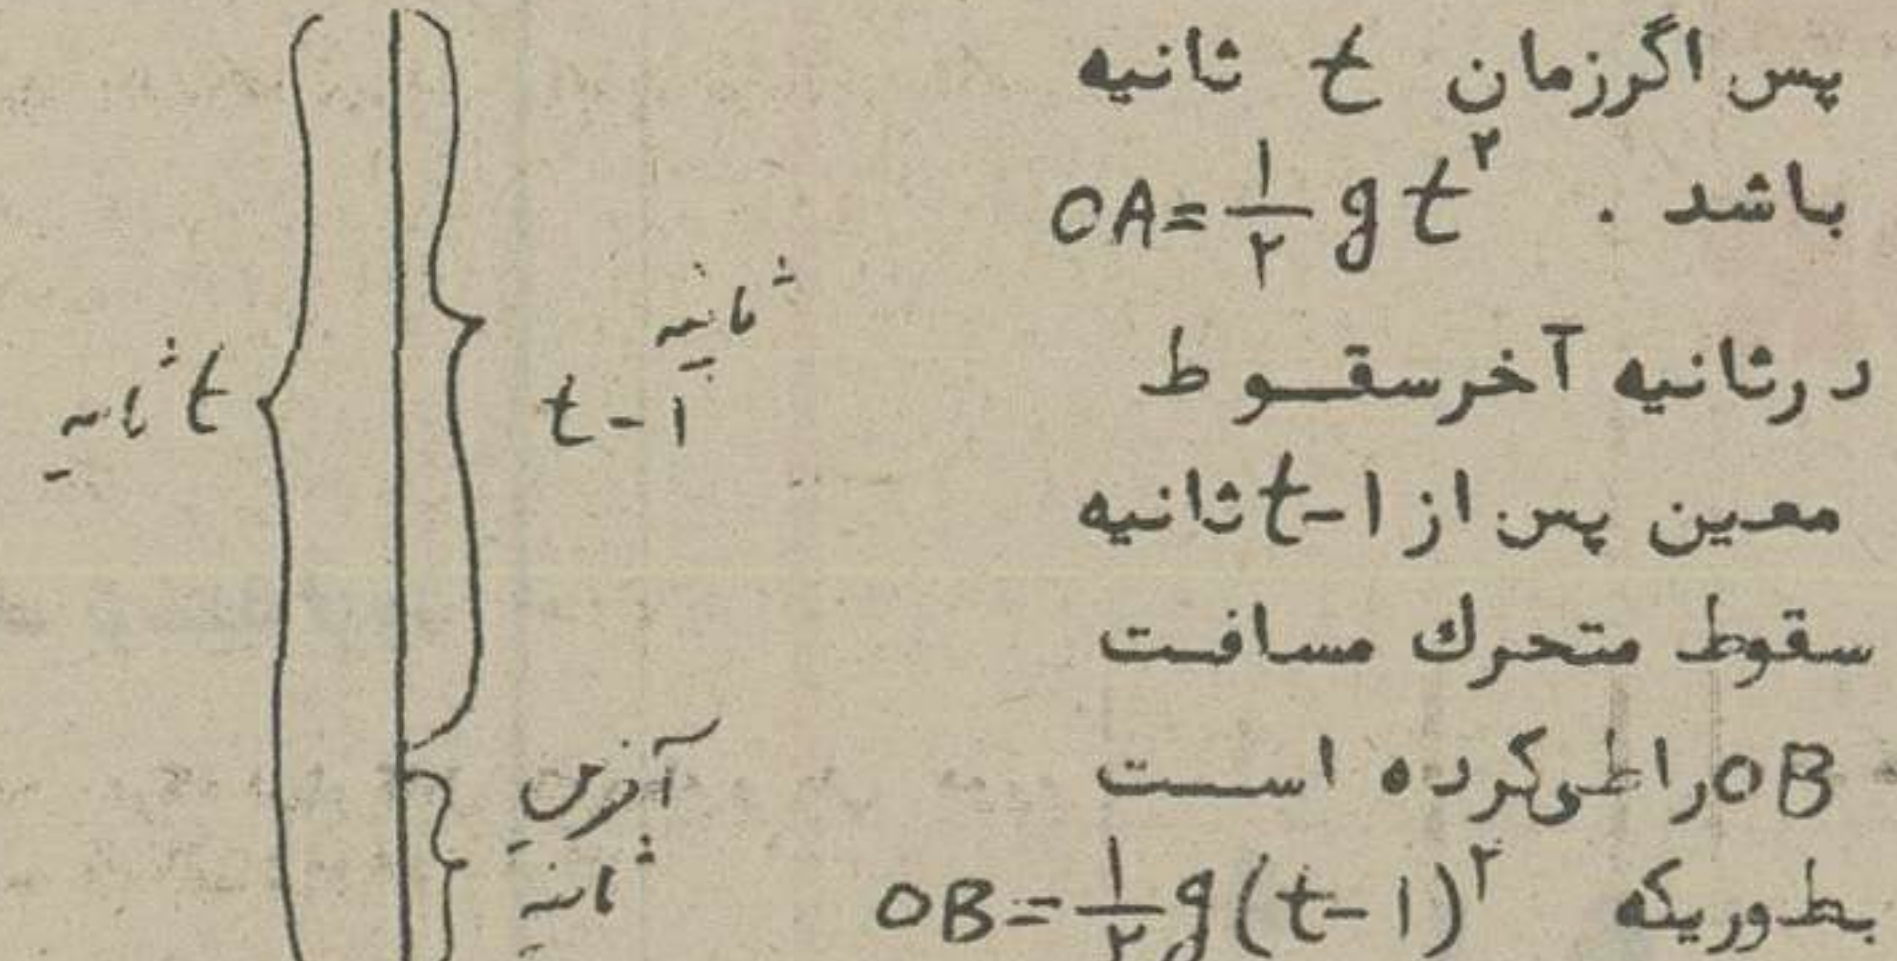 پس اگرزمان t ثانیه
باشد . OA=۱/۲ g t^۲
درثانیه آخرسقوط
معین پس از t-۱ ثانیه
سقوط متحرك مسافت
OB راطی‌کرده است
بطوریکه OB=۱/۲ g(t-۱)^۲
ثانیه
t-۱
t ثانیه
آخرین
ثانیه